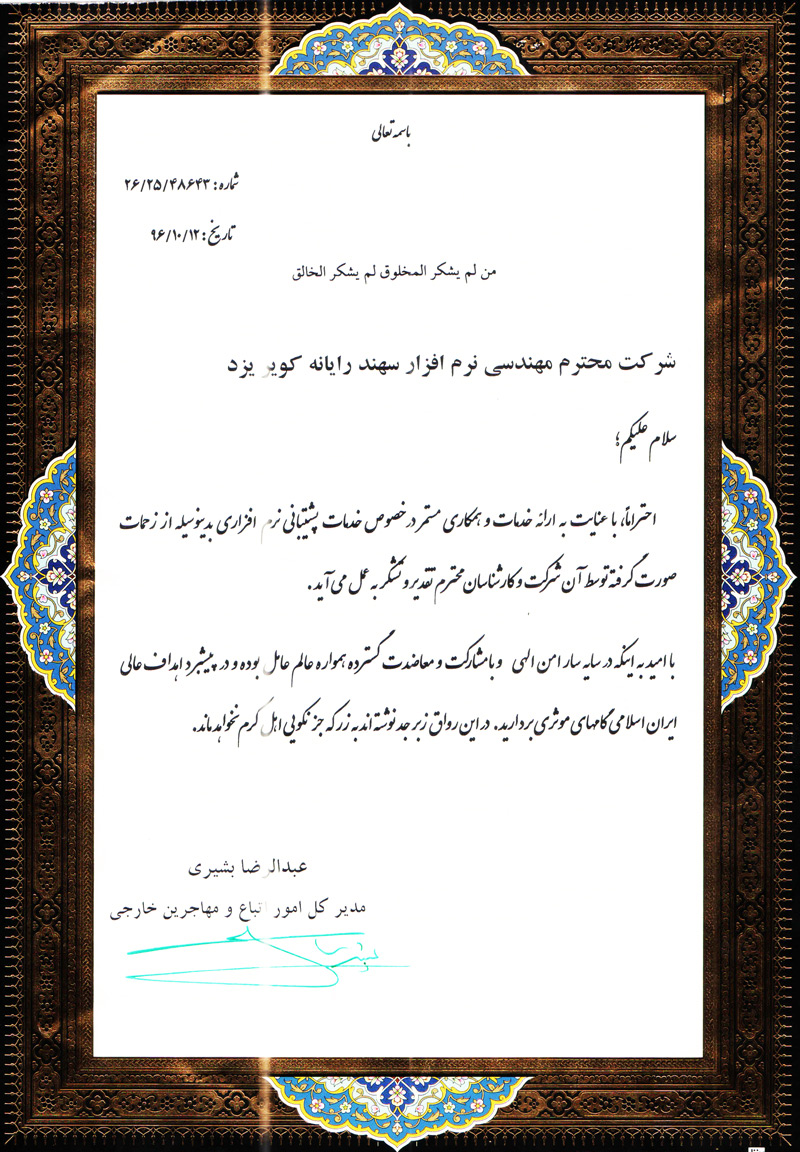 باسمه تعالی
شماره: ۲۶/۲۵/۴۸۶۴۳
تاریخ: ۹۶/۱۰/۱۲
من لم یشکر المخلوق لم یشکر الخالق
شرکت محترم مهندسی نرم افزار سهند رایانه کویر یزد
سلام علیکم؛
احتراماً، با عنایت به ارائه خدمات و همکاری مستمر در خصوص خدمات پشتیبانی نرم افزاری بدینوسیله از زحمات
صورت گرفته توسط آن شرکت و کارشناسان محترم تقدیر و تشکر به عمل می آید.
با امید به اینکه در سایه سار امن الهی و با مشارکت و معاضدت گسترده همواره عالم عامل بوده و در پیشبرد اهداف عالی
ایران اسلامی گامهای موثری بردارید. در این رواق زبرجد نوشته اند به زر که جز نکویی اهل کرم نخواهد ماند.
عبدالرضا بشیری
مدیر کل امور اتباع و مهاجرین خارجی